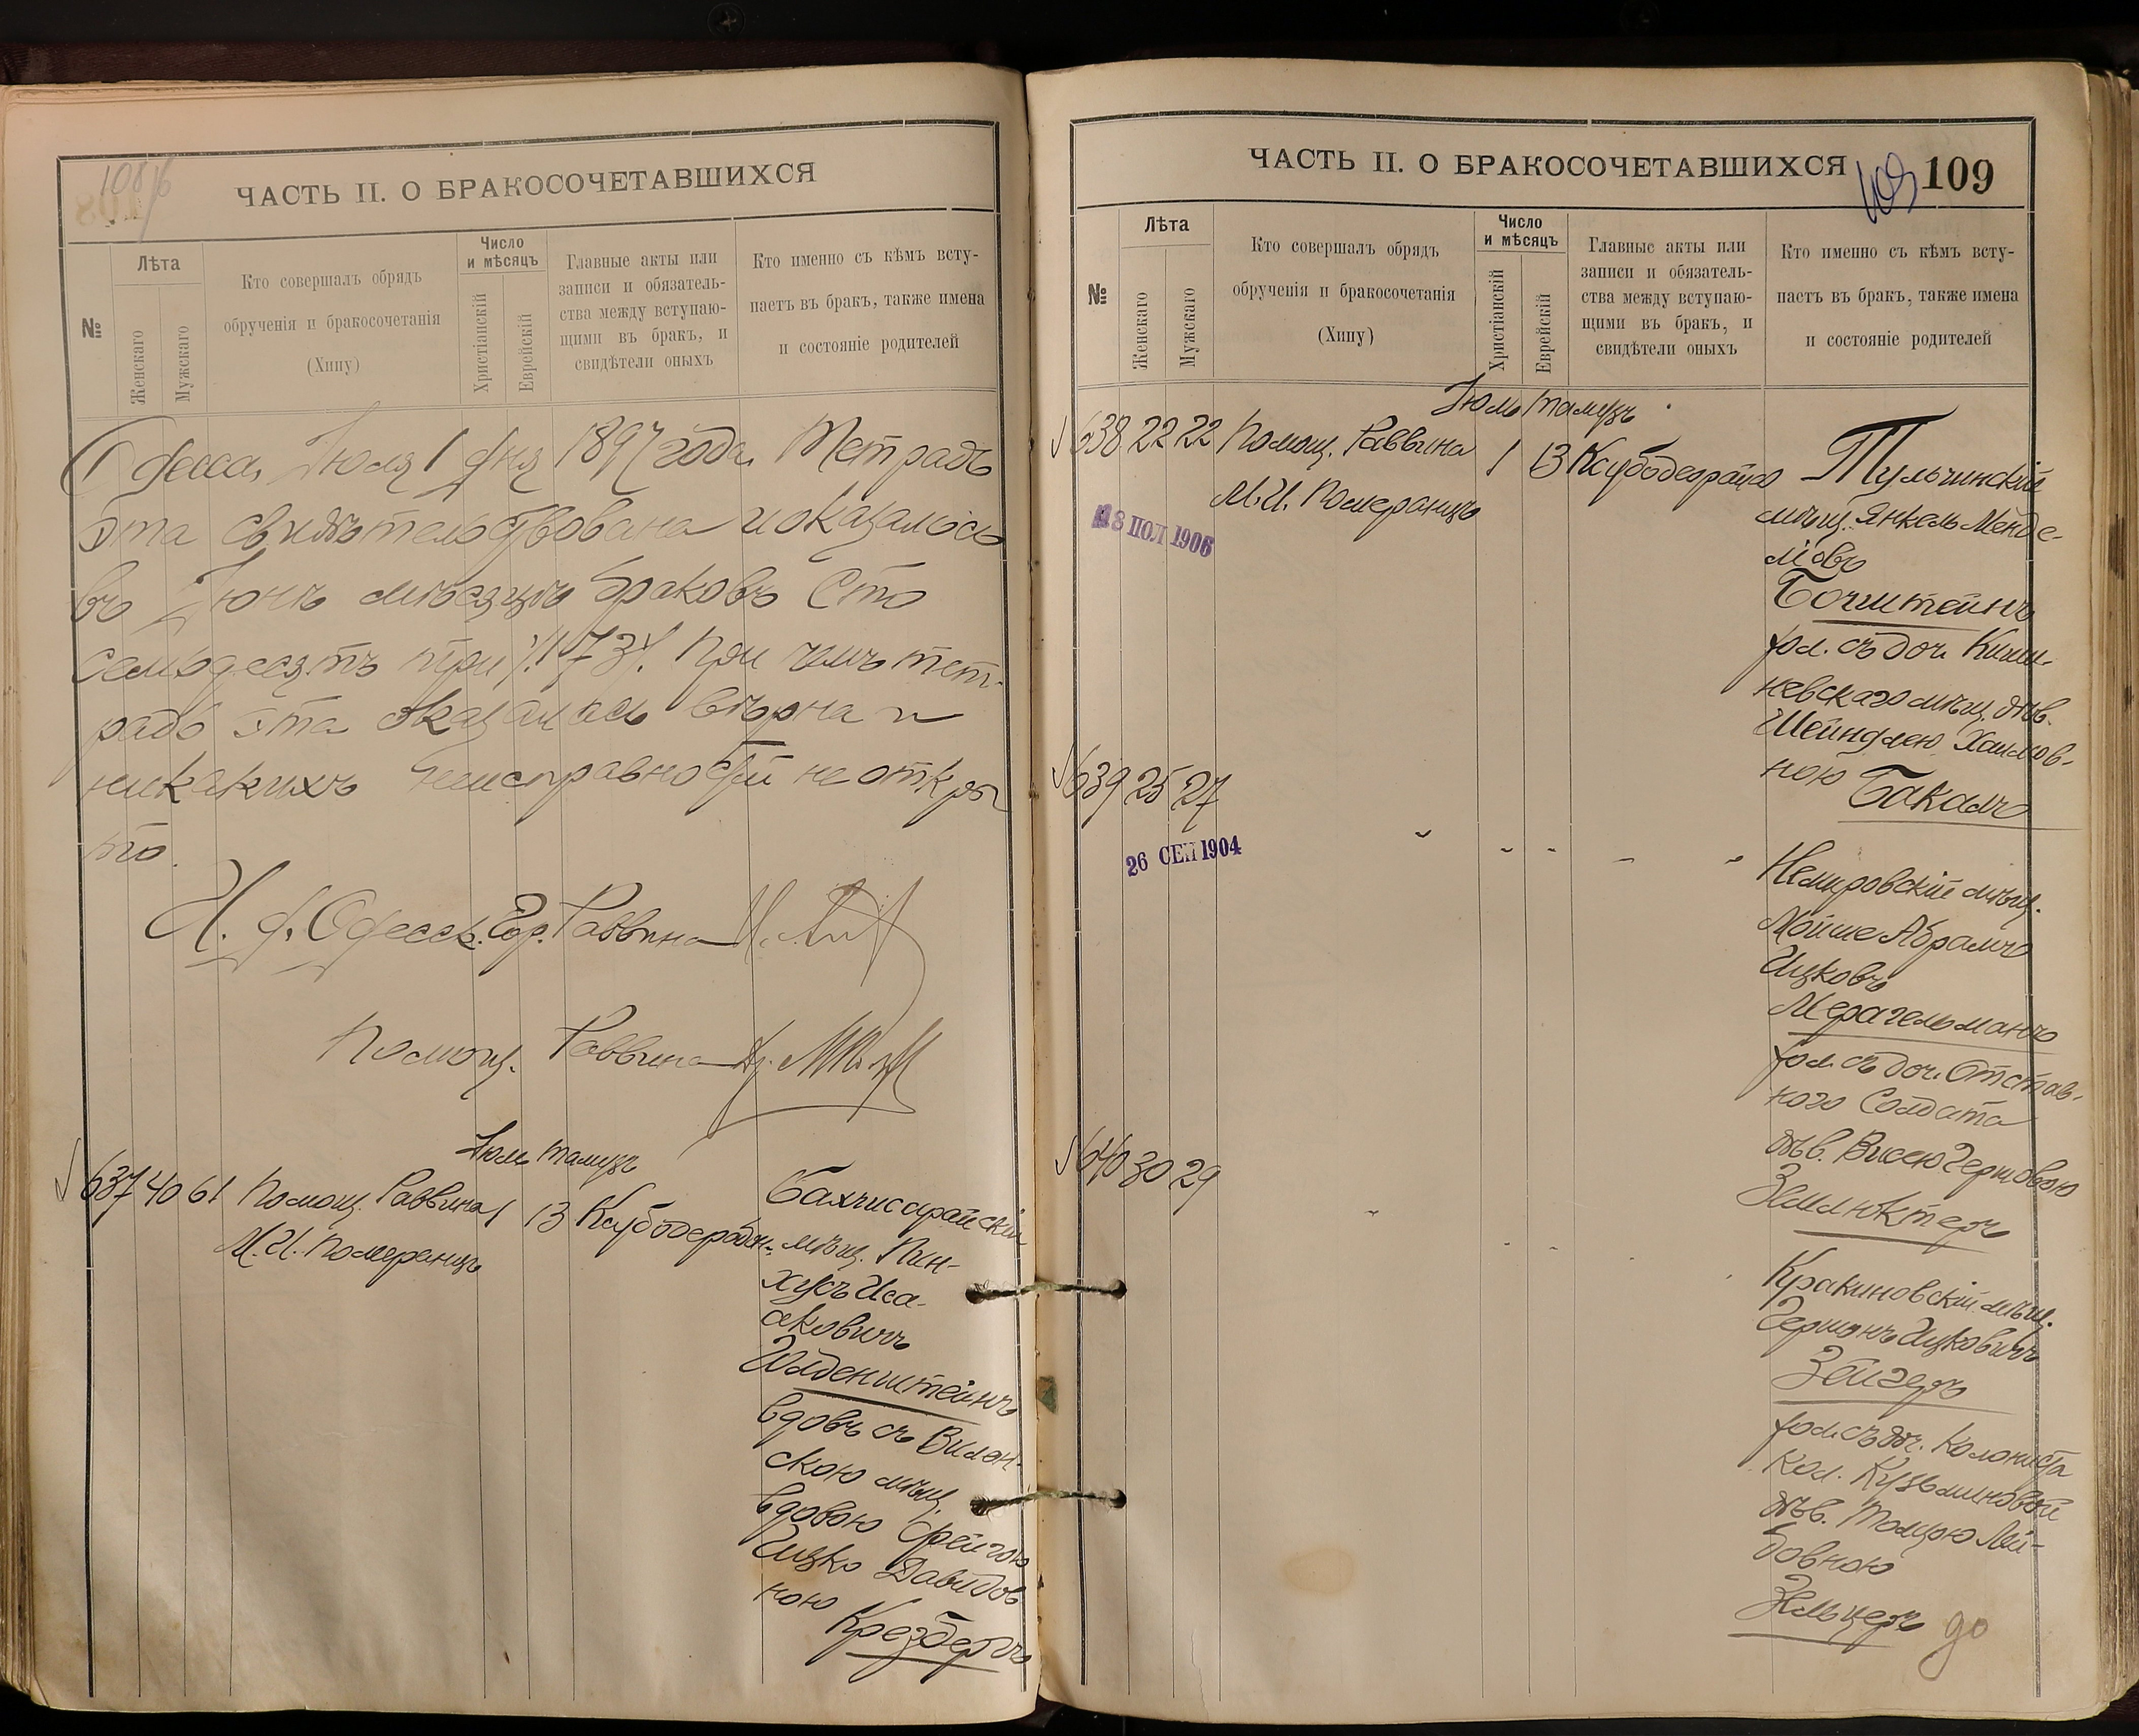 ЧАСТЬ II. О БРАКОСОЧЕТАВШИХСЯ
№
Лѣта
Женскаго
Мужскаго
Кто совершалъ обрядъ
обрученія и бракосочетанія
(Хипу)
Число
и мѣсяцъ
Христіанскій
Еврейскій
Главные акты или
записи и обязатель-
ства между вступаю-
щими въ бракъ, и
свидѣтели оныхъ
Кто именно съ кѣмъ всту-
паетъ въ бракъ, также имена
и состояніе родителей
Одесса, Іюля 1 дня 1897 года. Тетрадь
эта свидѣтельствована и оказалось
въ Іюнѣ мѣсяцѣ браковъ Сто
семьдесятъ три /173/. При чемъ тет-
радь эта оказалась вѣрна и
никакихъ неисправностей не откры
то.
И. д. Одесск. Гор. Раввина
Помощ. Раввина
Іюль тамузъ
637 40 61 Помощ. Раввина 1 13
М. И. Померанцъ
Бахчисарайскій
мѣщ. Пин-
хусъ Иса-
аковичъ
Вайденштейнъ
вдовъ съ Вилен-
скою мѣщ.
вдовою Фрейгою
Ицко Давидов
ною
Крезбергъ
ЧАСТЬ II. О БРАКОСОЧЕТАВШИХСЯ
109
109
№
Лѣта
Женскаго
Мужскаго
Кто совершалъ обрядъ
обрученія и бракосочетанія
(Хипу)
Число
и мѣсяцъ
Христіанскій
Еврейскій
Главные акты или
записи и обязатель-
ства между вступаю-
щими въ бракъ, и
свидѣтели оныхъ
Кто именно съ кѣмъ всту-
паетъ въ бракъ, также имена
и состояніе родителей
Іюль тамузъ
638 22 22 Помощ. Раввина 1 13
М. И. Померанцъ
18 ІЮЛ 1906
Тульчинскій
мѣщ. Янкель Менде-
лев
Бочштейнъ
хол. съ доч. Киши-
невскаго мѣщ. дѣв.
Шейндлею Хаимов-
ною Бакалъ
639 25 27
26 СЕН 1904
Немировскій мѣщ.
Мойше Абрамъ
Ицковъ
Мерагельманъ
хол. съ доч. Отстав-
ного Солдата
дѣв.
640 30 29
Кракиновскій мѣщ.
Гершонъ Ицковичъ
Зейгеръ
хол. съ доч. Колониста
Кол. Кузьминовой
дѣв. Толцою Лей-
бовною
Зельцеръ